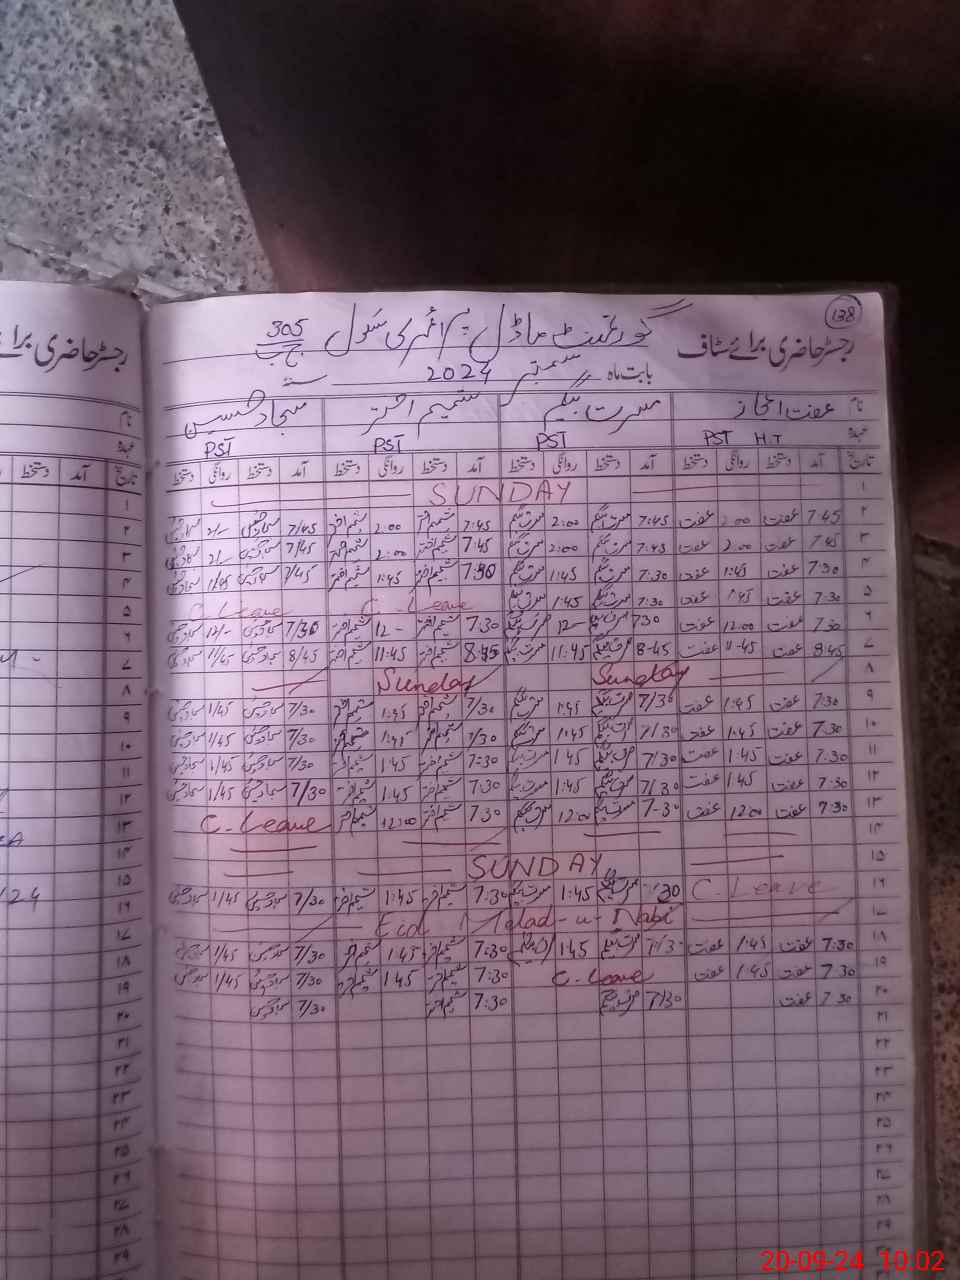 138
رجسٹر حاضری برائے سٹاف گورنمنٹ ماڈل پرائمری سکول 305 ج ب
بابت ماہ ستمبر 2024
نام عفت اعجاز مسرت بیگم شمیم اختر سجاد حسین
عہدہ PST H.T PST PST PST
تاریخ آمد دستخط روانگی دستخط آمد دستخط روانگی دستخط آمد دستخط روانگی دستخط آمد دستخط روانگی دستخط
۱ SUNDAY
۲ 7:45 عفت 2:00 عفت 7:45 مسرت بیگم 2:00 مسرت بیگم 7:45 شمیم اختر 2:00 شمیم اختر 7/45 سجاد حسین 2/- سجاد حسین
۳ 7:45 عفت 2:00 عفت 7:45 مسرت بیگم 2:00 مسرت بیگم 7:45 شمیم اختر 2:00 شمیم اختر 7/45 سجاد حسین 2/- سجاد حسین
۴ 7:30 عفت 1:45 عفت 7:30 مسرت بیگم 1:45 مسرت بیگم 7:30 شمیم اختر 1:45 شمیم اختر 7/45 سجاد حسین 1/45 سجاد حسین
۵ 7:30 عفت 1:45 عفت 7:30 مسرت بیگم 1:45 مسرت بیگم C. Leave C. Leave
۶ 7:30 عفت 12:00 عفت 7:30 مسرت بیگم 12- مسرت بیگم 7:30 شمیم اختر 12- شمیم اختر 7/30 سجاد حسین 12/- سجاد حسین
۷ 8:45 عفت 11-45 عفت 8-45 مسرت بیگم 11:45 مسرت بیگم 8:45 شمیم اختر 11:45 شمیم اختر 8/45 سجاد حسین 11/45 سجاد حسین
۸ Sunday Sunday
۹ 7:30 عفت 1:45 عفت 7/30 مسرت بیگم 1:45 مسرت بیگم 7/30 شمیم اختر 1:45 شمیم اختر 7/30 سجاد حسین 1/45 سجاد حسین
۱۰ 7:30 عفت 1:45 عفت 7/30 مسرت بیگم 1:45 مسرت بیگم 7/30 شمیم اختر 1:45 شمیم اختر 7/30 سجاد حسین 1/45 سجاد حسین
۱۱ 7:30 عفت 1:45 عفت 7/30 مسرت بیگم 1:45 مسرت بیگم 7:30 شمیم اختر 1:45 شمیم اختر 7/30 سجاد حسین 1/45 سجاد حسین
۱۲ 7:30 عفت 1:45 عفت 7/30 مسرت بیگم 1:45 مسرت بیگم 7:30 شمیم اختر 1:45 شمیم اختر 7/30 سجاد حسین 1/45 سجاد حسین
۱۳ 7:30 عفت 12:00 عفت 7-30 مسرت بیگم 12:00 مسرت بیگم 7:30 شمیم اختر 12:00 شمیم اختر C. Leave
۱۴
۱۵ SUNDAY
۱۶ C. Leave 7:30 مسرت بیگم 1:45 مسرت بیگم 7:30 شمیم اختر 1:45 شمیم اختر 7/30 سجاد حسین 1/45 سجاد حسین
۱۷ Eid Melad-u-Nabi
۱۸ 7:30 عفت 1:45 عفت 7/30 مسرت بیگم 1:45 مسرت بیگم 7:30 شمیم اختر 1:45 شمیم اختر 7/30 سجاد حسین 1/45 سجاد حسین
۱۹ 7:30 عفت 1:45 عفت C. Leave 7:30 شمیم اختر 1:45 شمیم اختر 7/30 سجاد حسین 1/45 سجاد حسین
۲۰ 7:30 عفت 7/30 مسرت بیگم 7:30 شمیم اختر 7/30 سجاد حسین
۲۱
۲۲
۲۳
۲۴
۲۵
۲۶
۲۷
۲۸
۲۹
رجسٹر حاضری برائے
نام
عہدہ
تاریخ آمد دستخط
۱
۲
۳
۴
۵
۶
۷
۸
۹
۱۰
۱۱
۱۲
۱۳
۱۴
۱۵
۱۶
۱۷
۱۸
۱۹
۲۰
۲۱
۲۲
۲۳
۲۴
۲۵
۲۶
۲۷
۲۸
۲۹
20-09-24 10.02